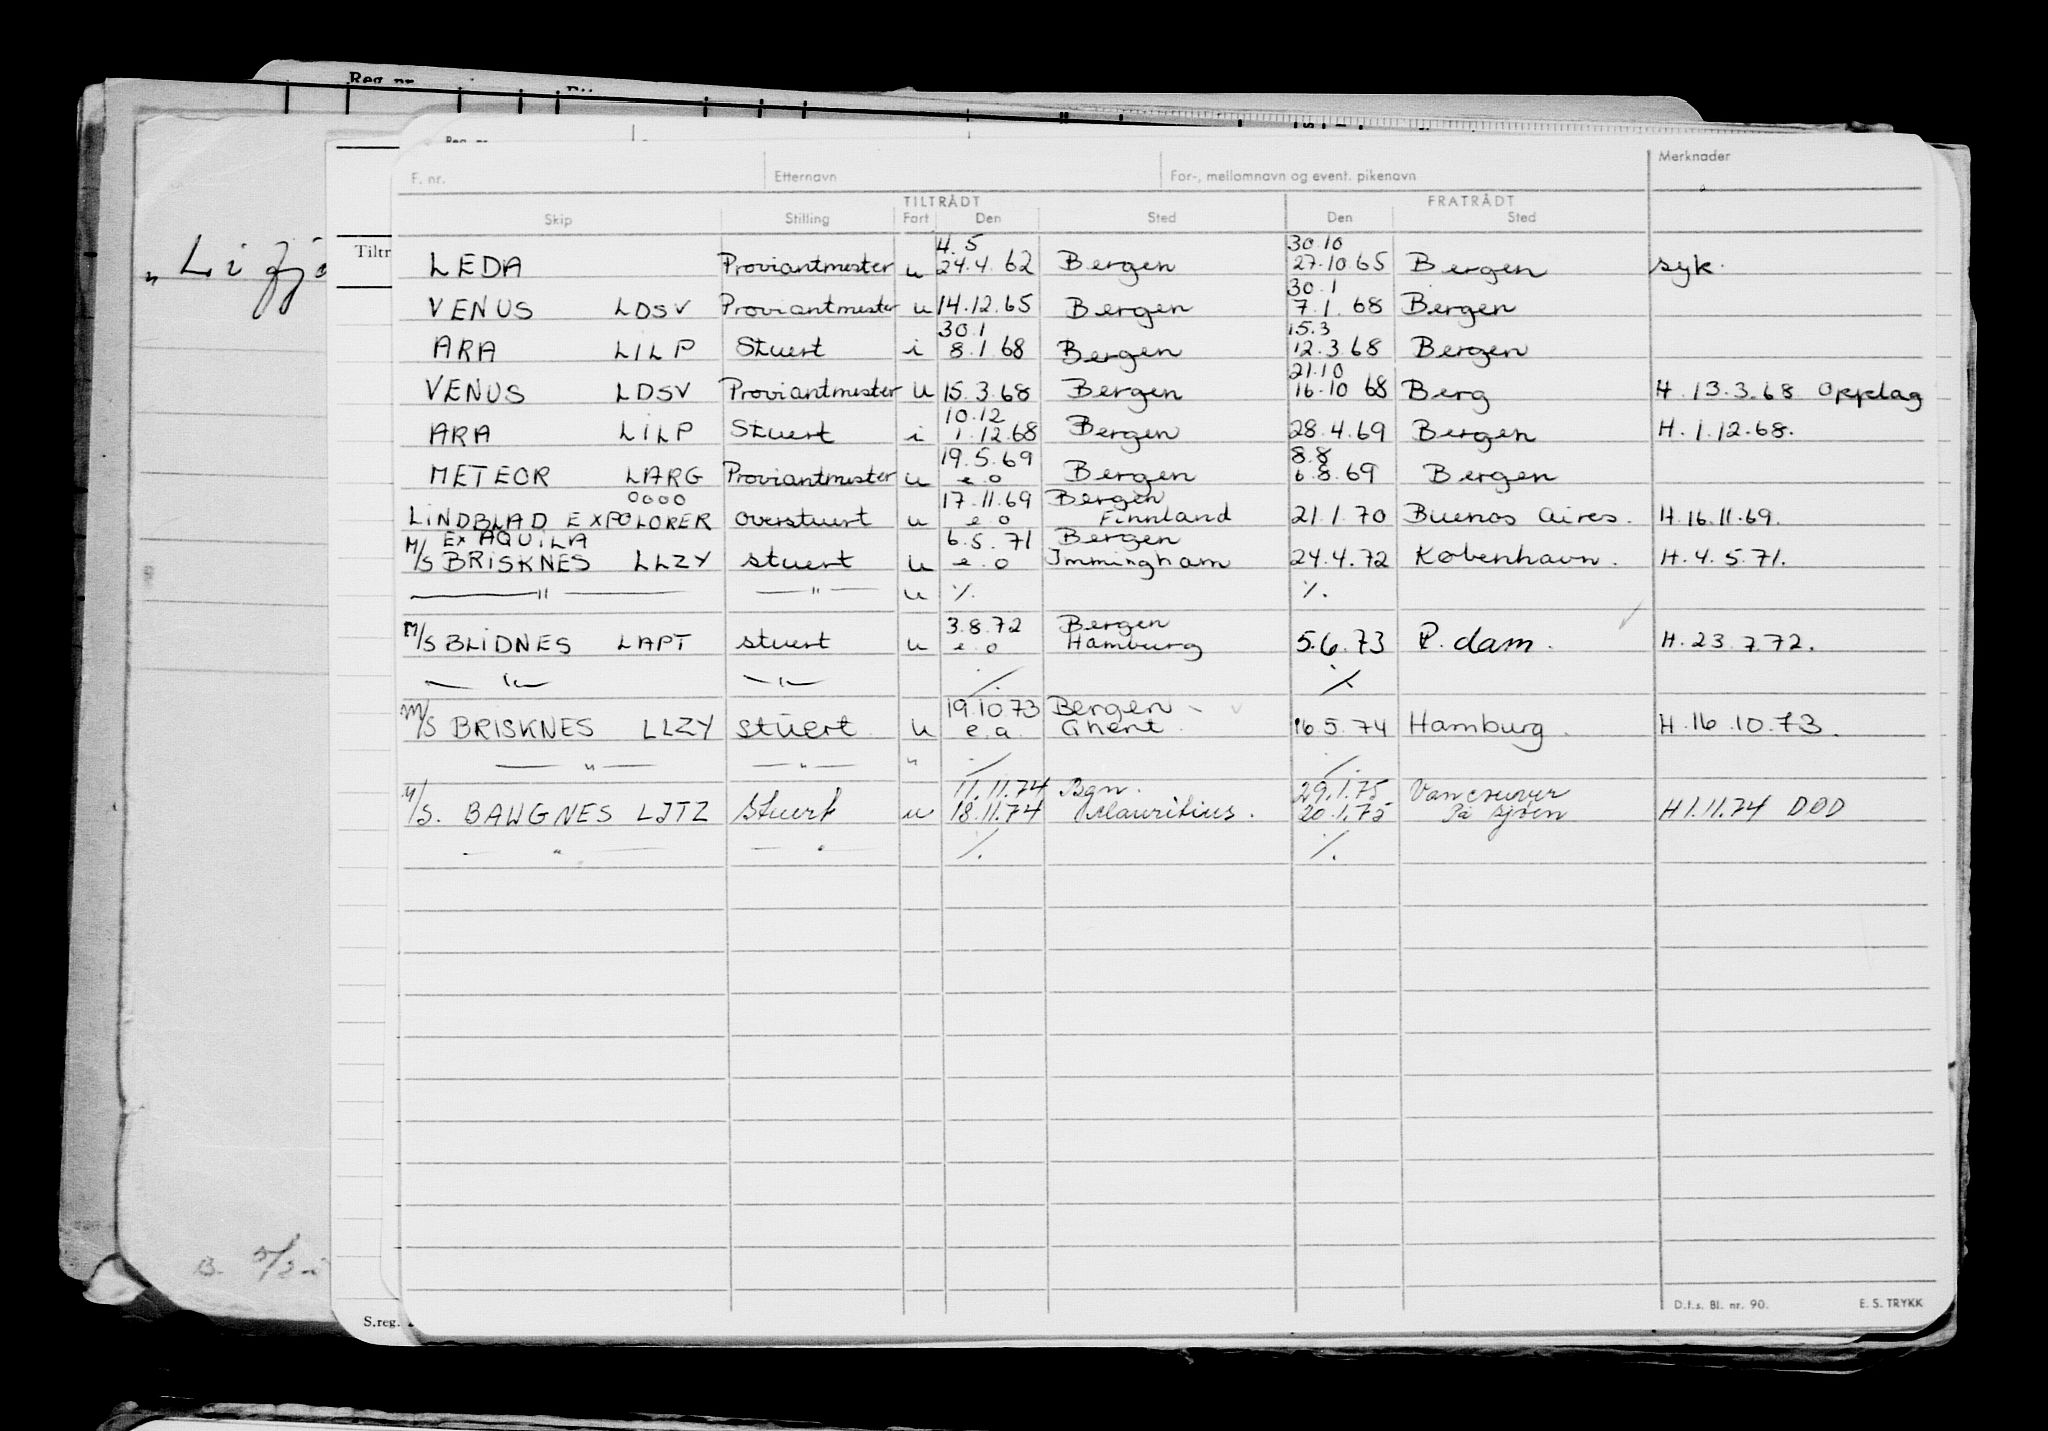 Reg. nr.
Reg. nr.
„ Lifj
Tiltr
F. nr. Etternavn For-, mellomnavn og event. pikenavn Merknader
TILTRÅDT FRATRÅDT
Skip Stilling Fart Den Sted Den Sted
4.5 30.10
LEDA Proviantmester u 24.4.62 Bergen 27.10.65 Bergen syk.
30.1
VENUS LDSV Proviantmester u 14.12.65 Bergen 7.1.68 Bergen
30.1 15.3
ARA LILP Stuert i 8.1.68 Bergen 12.3.68 Bergen
21.10
VENUS LDSV Proviantmester u 15.3.68 Bergen 16.10 68 Berg H. 13.3.68 Opplag
10.12
ARA LILP Stuert i 1.12.68 Bergen 28.4.69 Bergen H. 1.12.68.
19.5.69 8.8
METEOR LARG Proviantmester u e.o Bergen 6.8.69 Bergen
OOOO 17.11.69 Bergen
LINDBLAD EXPOLORER Overstuert u e o Finnland 21.1.70 Buenos Aires. H.16.11.69.
Ex AQUILA 6.5.71 Bergen
M/S BRISKNES LLZY stuert u e.o Immingham 24.4.72 København. H.4.5.71.
— " — — " — u ·/. ·/.
3.8.72 Bergen
M/S BLIDNES LAPT stuert u e.o Hamburg 5.6.73 R.dam. H.23.7.72.
— " — — " — ·/. ·/.
19.10.73 Bergen
M/S BRISKNES LLZY stuert u e.a. Ghent. 16.5.74 Hamburg. H.16.10.73.
— " — — " — " ·/. ·/.
11.11.74 Bgn. 29.1.75 Vancouver
M/S. BAUGNES LJTZ Stuert u 18.11.74 Mauritius. 20.1.75 På sjøen H 1.11.74 DØD
— " — — " — ·/. ·/.
S.reg.
D.f.s. Bl. nr. 90. E. S. TRYKK